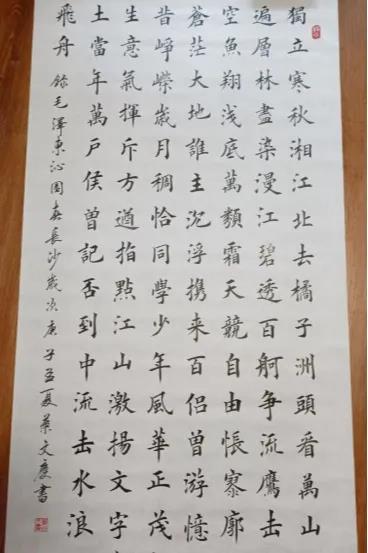 獨立寒秋湘江北去橘子洲頭看萬山
遍層林盡染漫江碧透百舸爭流鷹击
空魚翔浅底萬類霜天競自由悵寥廓
蒼茫大地誰主沉浮携来百侣曾游憶
昔崢嶸歲月稠恰同學少年風華正茂
生意氣揮斥方遒指點江山激揚文字
土當年萬户侯曾記否到中流击水浪
飛舟 錄毛澤東沁園春長沙歲次庚子孟夏文慶書